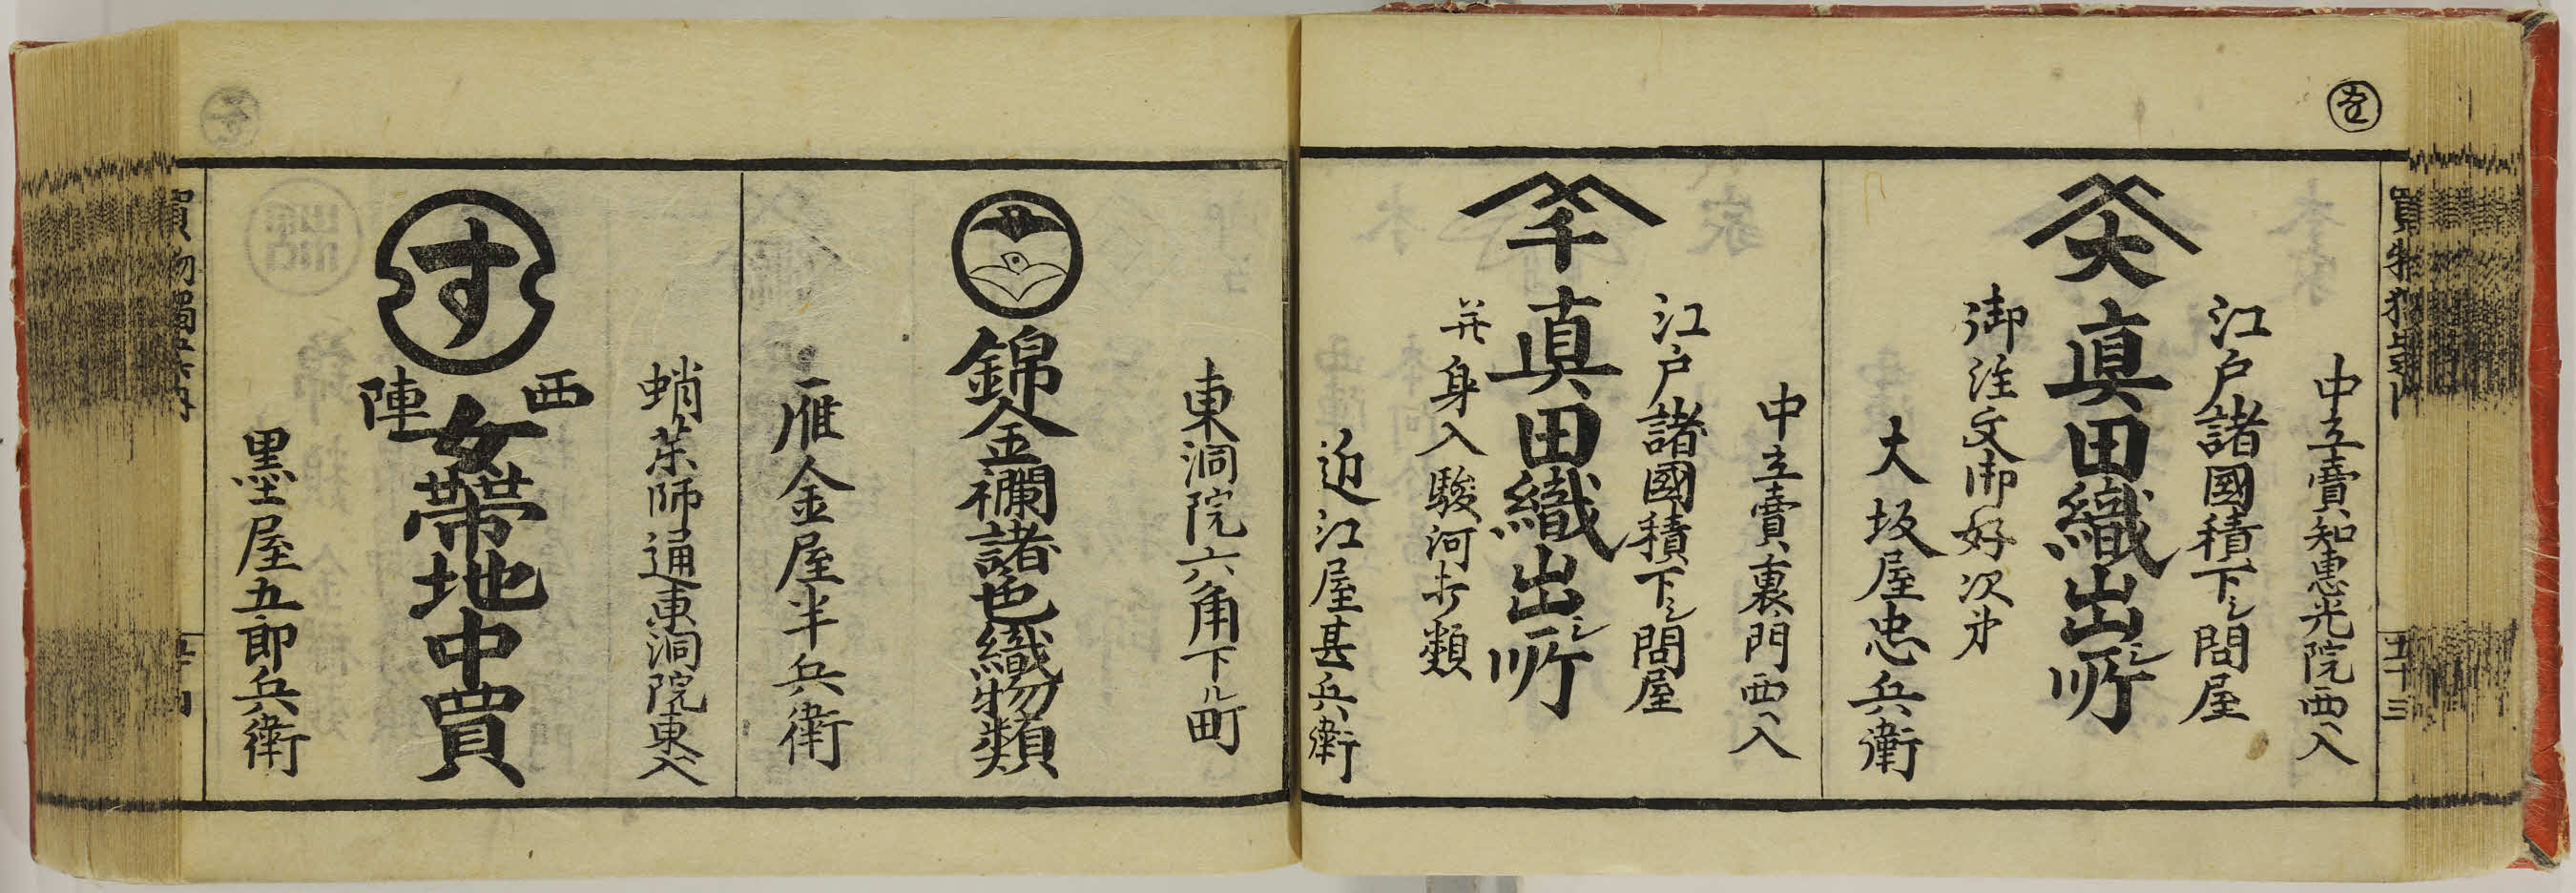 を
中立賣知恵光院西入
江戸諸國積下シ問屋
大
真田織出シ所
御注文御好次第
大坂屋忠兵衛
中立賣裏門西入
江戸諸國積下シ問屋
千
真田織出シ所
并身入駿河打類
近江屋甚兵衛
五十三
東洞院六角下ル町
錦金襴諸色織物類
雁金屋半兵衛
蛸薬師通東洞院東入
す
西陣
女帯地中買
墨屋五郎兵衛